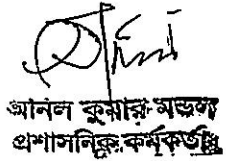 আনিল কুমার মন্ডল
প্রশাসনিক কর্মকর্তা